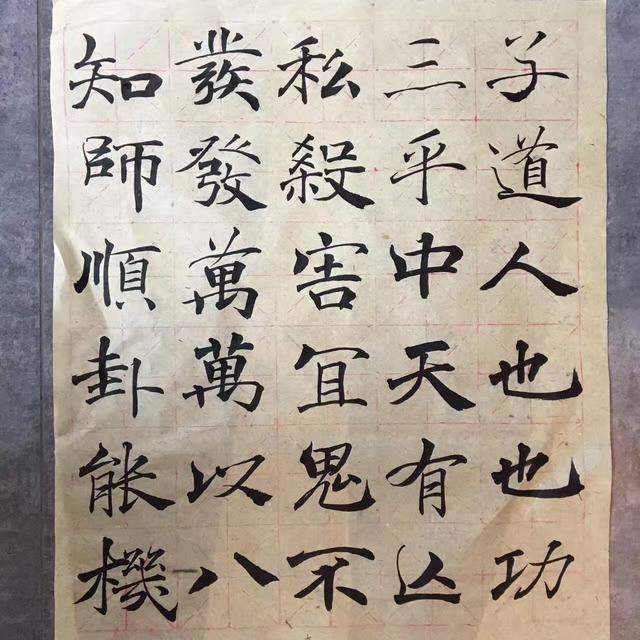 子道人也也功
三乎中天有亾
私殺害冝鬼不
發萬萬以八
知師順卦能機